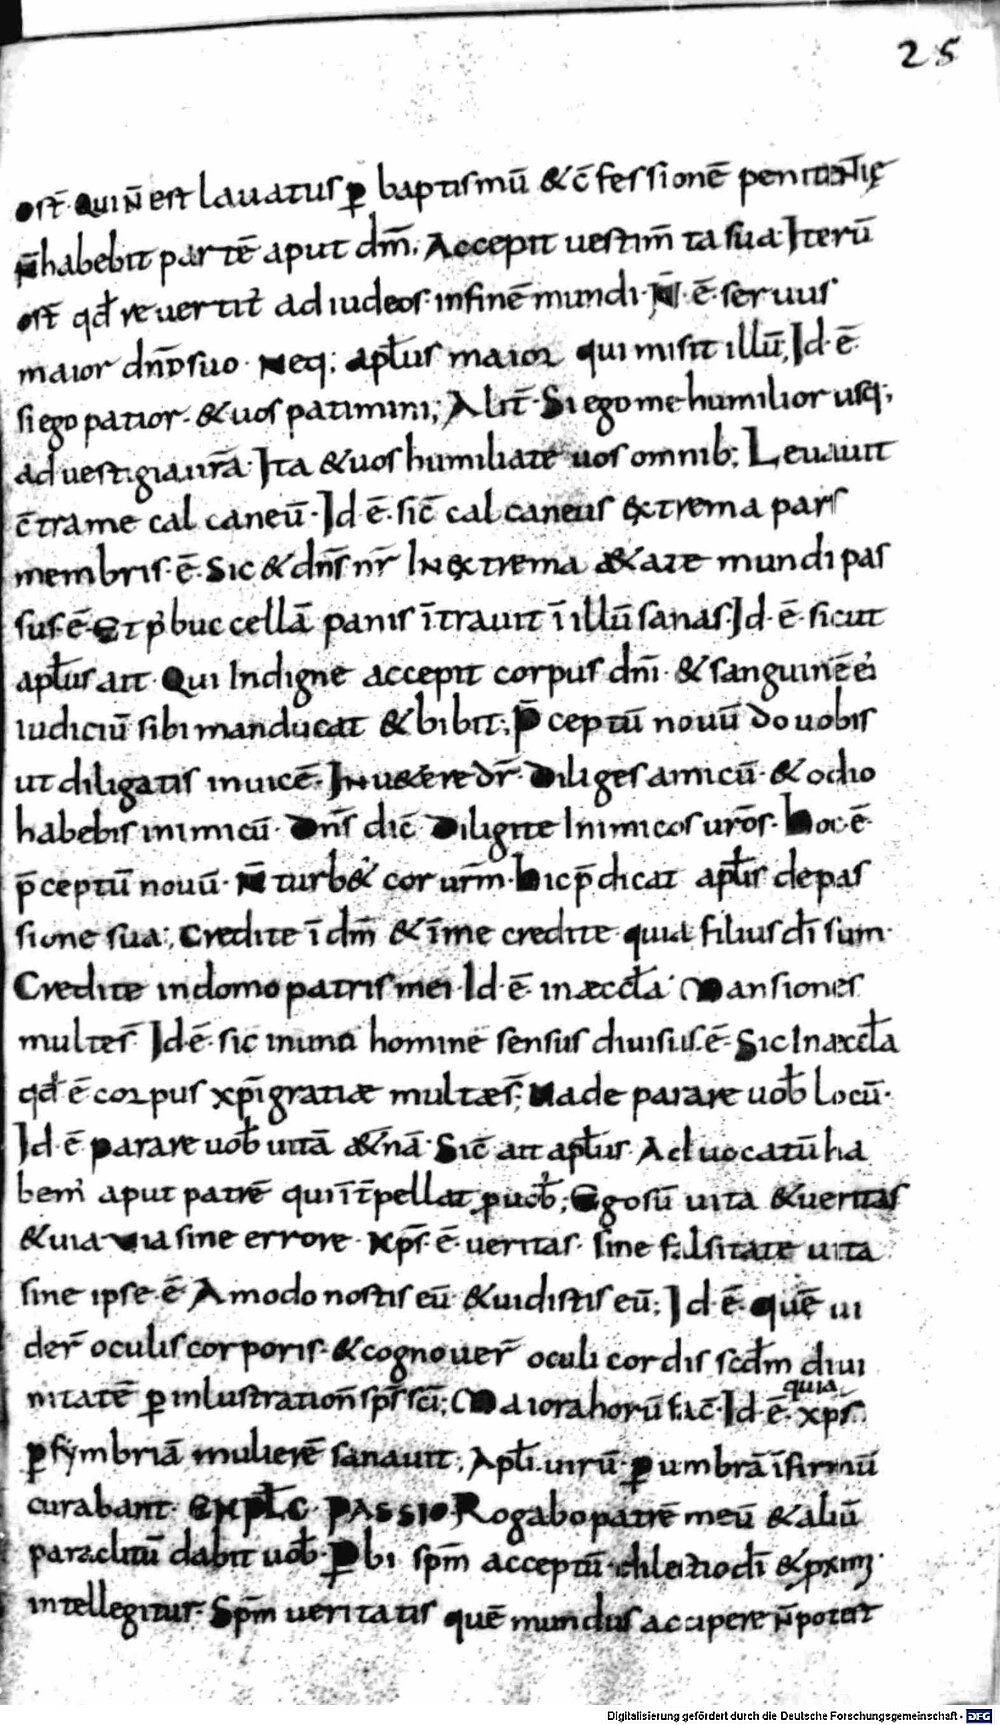 25
est. Qui n̄ est lauatus ꝑ baptismū & c̄fessionē penitentię
n̄ habebit partē aput dm̄. Accepit uestim̄ta sua. Iterū
est̄ qđ reuertit᷑ ad iudeos. in finē mundi. N̄ ē seruus
maior dn̄o suo. Neq; apłus maior qui misit illū, Id ē
si ego patior. & uos patimini; Alit̄. Si ego me humilior usq;
ad uestigia ur̄a. Ita & uos humiliate uos omnib; Leuauit
c̄tra me calcaneū. Id ē. sic̄ calcaneus extrema pars
membris. ē. Sic & dn̄s nr̄ In extrema aetate mundi pas
sus ē. Et p᷒ buccellā panis ītrauit ī illū sanas. Id ē. sicut
apłus ait. Qui Indigne accepit corpus dn̄i. & sanguinē ei᷒
iudiciū sibi manducat & bibit; P̄ceptū nouū do uobis
ut diligatis inuicē. In uetere dr̄. Diliges amicū. & odio
habebis inimicū. Dn̄s dic̄ Diligite Inimicos ur̄os. Hoc ē
p̄ceptū nouū. N̄ turbet᷑ cor ur̄m. Hic p̄dicat apłis de pas
sione sua; Credite ī dm̄ & ī me credite quia filius dī sum.
Credite in domo patris mei. Id. ē. in æccła. Mansiones
multe s̄. Id ē. sic in uno homine sensus diuisus. ē. Sic In æccła
qđ ē corpus xp̄i gratiæ multæ s̄; Uade parare uob̄ locū.
Id. ē parare uob̄ uitā æt̄nā. Sic̄ ait apłus. Aduocatū ha
bem᷒ aput patrē qui īt̄pellat ꝑ uob̄; Ego sū uita & ueritas
& uia uia sine errore. Xp̄s. ē. ueritas. sine falsitate uita
sine ipse. ē Amodo nostis eū. & uidistis eū; Id. ē. quē ui
der̄ oculis corporis. & cognouer̄ oculi cordis scđm diui
nitatē ꝑ inlustration̄ sp̄s sc̄i; Maiora horū fac̄. Id. ē. quia xp̄s
ꝑ fymbriā mulierē sanauit; Apłi. uirū. ꝑ umbrā īfirmū
curabant. Expłc. Passio Rogabo patrē meū & aliū
paraclitū dabit uob̄. sp̄m acceptū
intellegitur. Sp̄m ueritatis quē mundus accipere n̄ potest
Digitalisierung gefördert durch die Deutsche Forschungsgemeinschaft - DFG